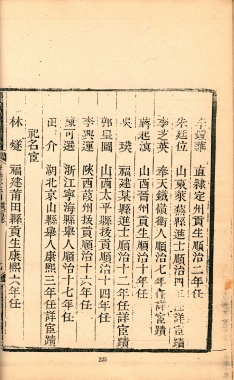 李鍾華　直隸定州貢生順治二年任
朱廷位　山東萊蕪縣進士順治四年任詳宦蹟
李芝英　奉天鐵嶺衛人順治七年任詳宦蹟
蔣起濱　山西晉州貢生順治十年任
吳璞　福建某縣進士順治十二年任詳宦蹟
郭皇圖　山西太平縣拔貢順治十四年任
李興運　陝西葭州拔貢順治十六年任
陳可選　浙江寧海縣舉人順治十七年任
王介　湖北京山縣舉人康熙三年任詳宦蹟
祀名宦
林爕　福建莆田縣貢生康熙六年任
225